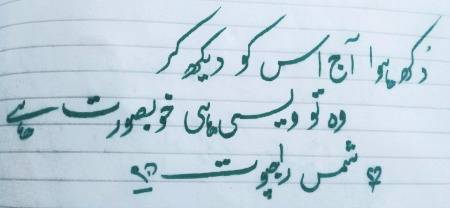 دُکھ ہوا آج اس کو دیکھ کر
وہ تو ویسی ہی خوبصورت ہے
شمس راجپوت